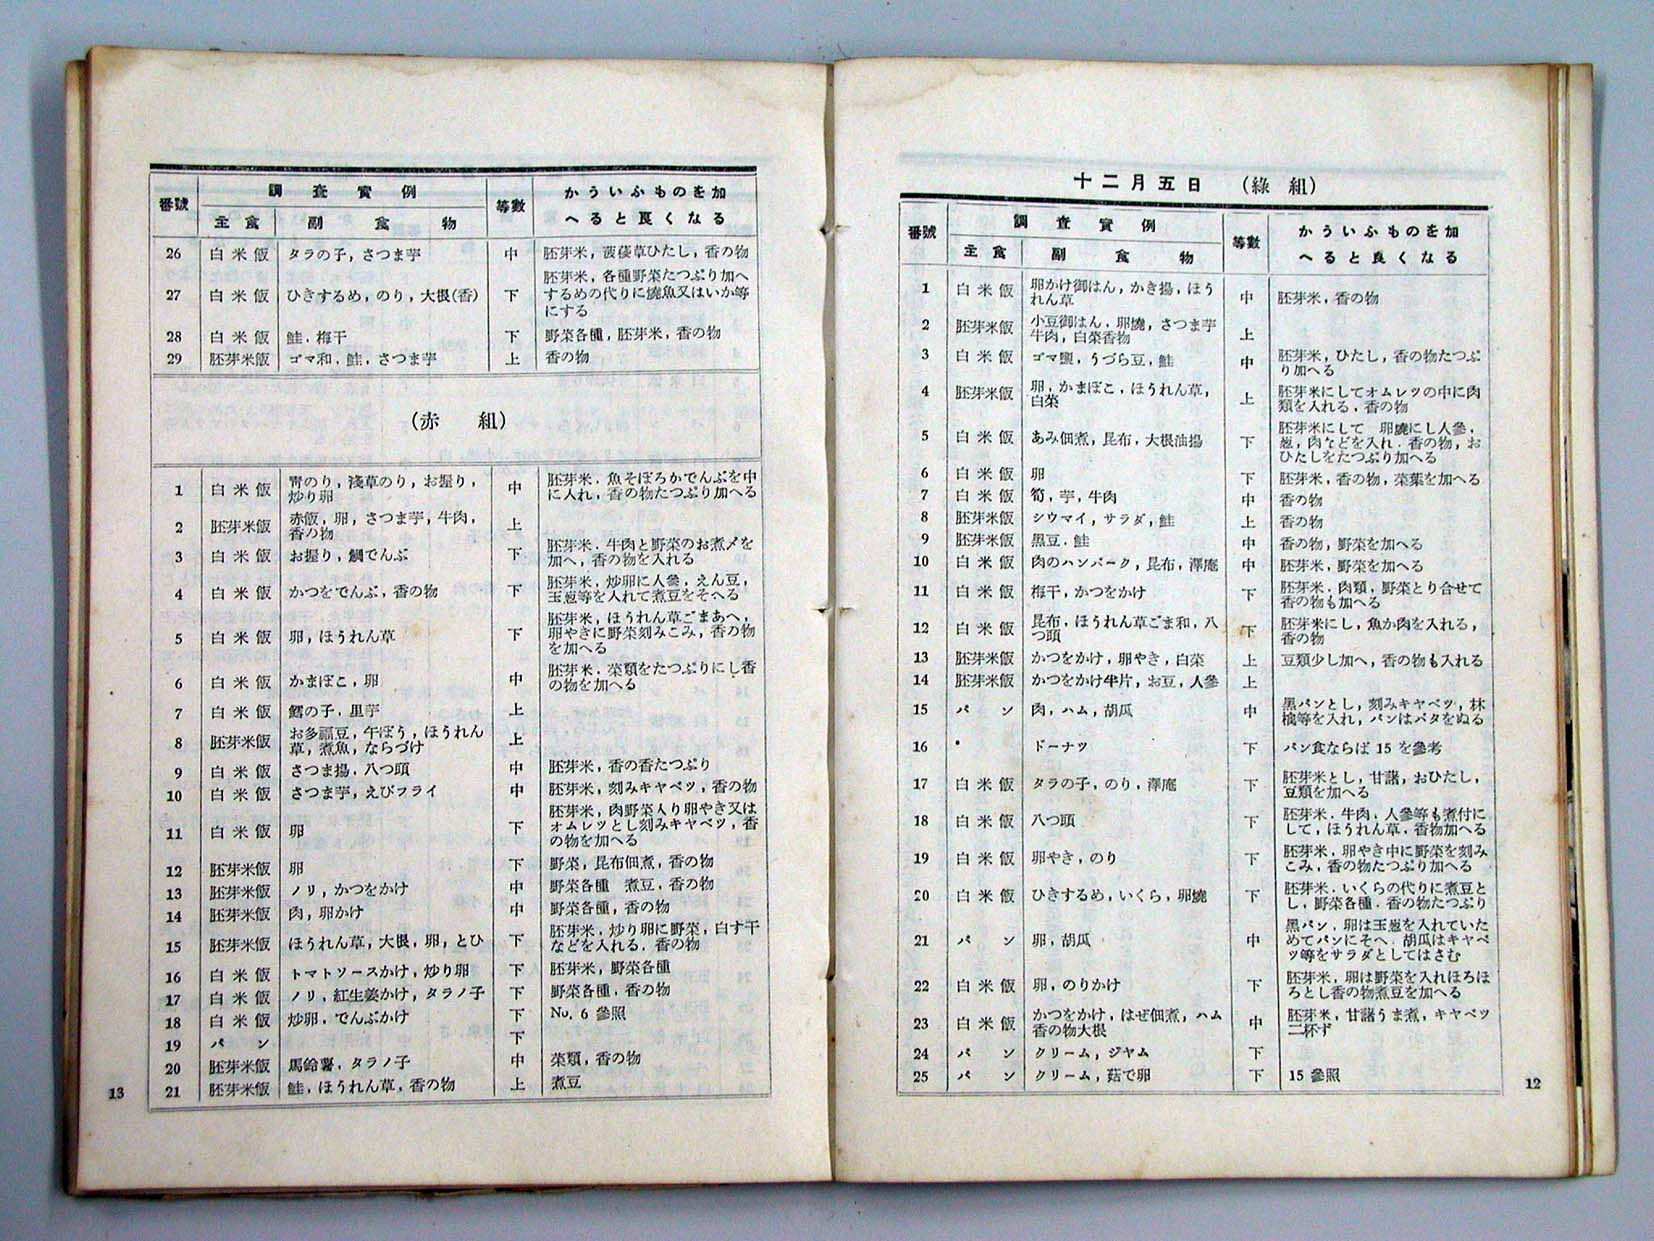 十二月五日 (綠組)
番號 調査實例 等數 かういふものを加へると良くなる
主食 副食物
1 白米飯 卵かけ御はん，かき揚，ほうれん草 中 胚芽米，香の物
2 胚芽米飯 小豆御はん，卵燒，さつま芋牛肉，白菜香物 上
3 胚芽米飯 ゴマ鹽，うづら豆，鮭 中 胚芽米，ひたし，香の物たつぷり加へる
4 胚芽米飯 卵，かまぼこ，ほうれん草，白菜 上 胚芽米にしてオムレツの中に肉類を入れる，香の物
5 白米飯 あみ佃煮，昆布，大根油揚 下 胚芽米にして 卵燒にし人參，葱，肉などを入れ．香の物，おひたしをたつぷり加へる
6 白米飯 卵 下 胚芽米，香の物，菜葉を加へる
7 白米飯 筍，芋，牛肉 中 香の物
8 胚芽米飯 シウマイ，サラダ，鮭 上 香の物
9 胚芽米飯 黑豆．鮭 中 香の物，野菜を加へる
10 白米飯 肉のハンバーク，昆布，澤庵 中 胚芽米，野菜を加へる
11 白米飯 梅干，かつをかけ 下 胚芽米．肉類，野菜とり合せて香の物も加へる
12 白米飯 昆布，ほうれん草ごま和，八つ頭 下 胚芽米にし，魚か肉を入れる，香の物
13 胚芽米飯 かつをかけ，卵やき，白菜 上 豆類少し加へ，香の物も入れる
14 胚芽米飯 かつをかけ半片，お豆，人參 上
15 パン 肉，ハム，胡瓜 中 黑パンとし，刻みキャベツ，林檎等を入れ，パンはバタをぬる
16 ・ ドーナツ 下 パン食ならば 15 を參考
17 白米飯 タラの子，のり，澤庵 下 胚芽米とし，甘藷，おひたし，豆類を加へる
18 白米飯 八つ頭 下 胚芽米．牛肉．人參等も煮付にして，ほうれん草．香物加へる
19 白米飯 卵やき，のり 下 胚芽米．卵やき中に野菜を刻みこみ，香の物たつぷり加へる
20 白米飯 ひきするめ，いくら，卵燒 下 胚芽米．いくらの代りに煮豆とし，野菜各種．香の物たつぷり
21 パン 卵，胡瓜 中 黑パン．卵は玉葱を入れていためてパンにそへ．胡瓜はキャベツ等をサラダとしてはさむ
22 白米飯 卵，のりかけ 下 胚芽米，卵は野菜を入れほろほろとし香の物煮豆を加へる
23 白米飯 かつをかけ，はぜ佃煮，ハム香の物大根 中 胚芽米，甘藷うま煮，キャベツ二杯ず
24 パン クリーム，ジヤム 下
25 パン クリーム，茹で卵 下 15 參照
12
番號 調査實例 等數 かういふものを加へると良くなる
主食 副食物
26 白米飯 タラの子，さつま芋 中 胚芽米，菠薐草ひたし，香の物
27 白米飯 ひきするめ，のり，大根(香) 下 胚芽米，各種野菜たつぷり加へするめの代りに燒魚又はいか等にする
28 白米飯 鮭，梅干 下 野菜各種，胚芽米，香の物
29 胚芽米飯 ゴマ和．鮭，さつま芋 上 香の物
(赤組)
1 白米飯 靑のり，淺草のり，お握り，炒り卵 中 胚芽米．魚そぼろかでんぶを中に入れ，香の物たつぷり加へる
2 胚芽米飯 赤飯，卵，さつま芋，牛肉，香の物 上
3 白米飯 お握り，鯛でんぶ 下 胚芽米．牛肉と野菜のお煮〆を加へ，香の物を入れる
4 白米飯 かつをでんぶ，香の物 下 胚芽米，炒卵に人參，えん豆，玉葱等を入れて煮豆をそへる
5 白米飯 卵，ほうれん草 下 胚芽米，ほうれん草ごまあへ，卵やきに野菜刻みこみ，香の物を加へる
6 白米飯 かまぼこ，卵 中 胚芽米．菜類をたつぷりにし香の物を加へる
7 白米飯 鱈の子．里芋 上
8 胚芽米飯 お多福豆，午ぼう，ほうれん草，煮魚，ならづけ 上
9 白米飯 さつま揚，八つ頭 中 胚芽米，香の香たつぷり
10 白米飯 さつま芋，えびフライ 中 胚芽米，刻みキャベツ，香の物
11 白米飯 卵 下 胚芽米，肉野菜入り卵やき又はオムレツとし刻みキャベツ，香の物を加へる
12 胚芽米飯 卵 下 野菜，昆布佃煮，香の物
13 胚芽米飯 ノリ，かつをかけ 中 野菜各種 煮豆，香の物
14 胚芽米飯 肉，卵かけ 中 野菜各種，香の物
15 胚芽米飯 ほうれん草，大根，卵，とひ 下 胚芽米，炒り卵に野菜，白す干などを入れる．香の物
16 白米飯 トマトソースかけ，炒り卵 下 胚芽米，野菜各種
17 白米飯 ノリ，紅生姜かけ，タラノ子 下 野菜各種．香の物
18 白米飯 炒卵，でんぶかけ 下 No. 6 參照
19 パン 下
20 胚芽米飯 馬鈴薯，タラノ子 中 菜類，香の物
21 胚芽米飯 鮭，ほうれん草，香の物 上 煮豆
13